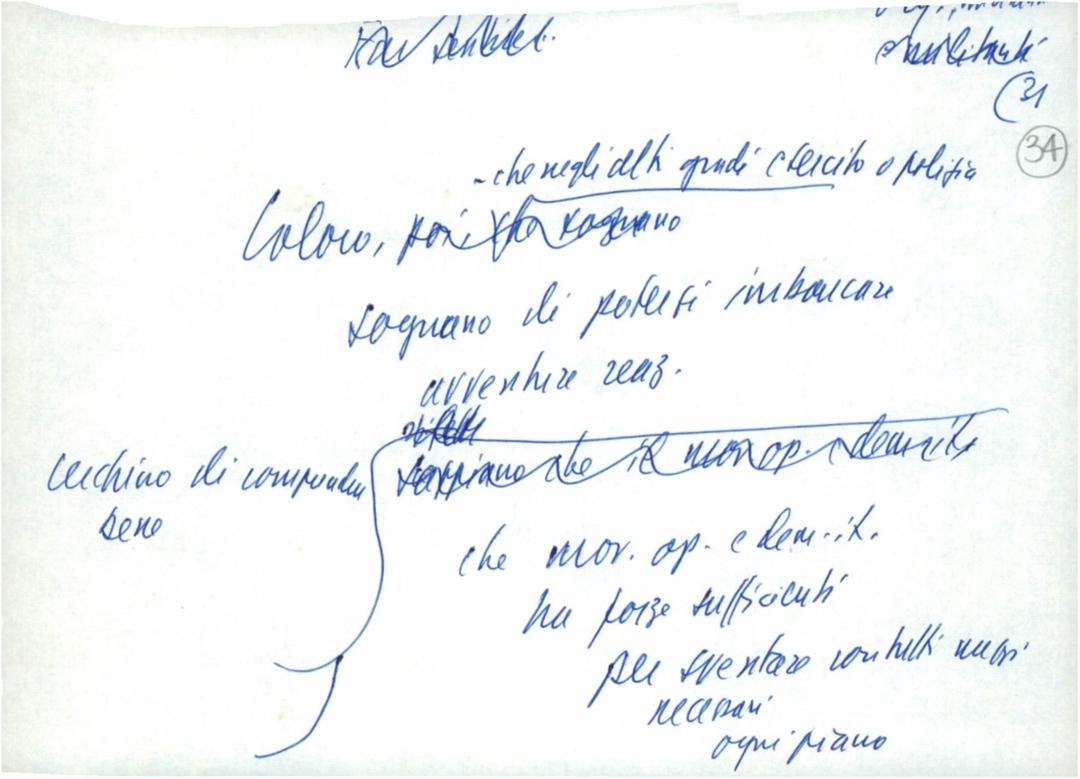 militanti
(31
34
- che negli alti gradi esercito o polizia
Coloro, poi che sognano
sognano di potersi imboccare
avventure reaz.
sappiano che il mov op. e dem. it.
cerchino di comprendere
bene
che mov. op. e dem. it.
ha forze sufficienti
per sventare con tutti mezzi
necessari
ogni piano